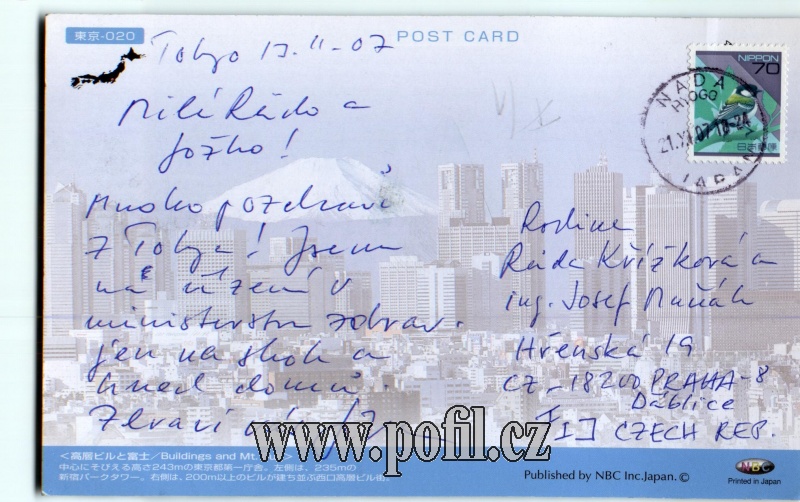 東京-020
POST CARD
Tokyo 13.11-07
NIPPON
70
日本郵便
NADA
HYOGO
21.XI.07 18-24
JAPAN
Milí Rádo a
Jožko!
Mnoho pozdravů
z Tokya! Jsem
na v
ministerstvu zdrav.
jen na skok a
hned domů.
Zdraví
Rodina
Ráda Křížková a
ing. Josef Maňák
Hřenská 19
CZ-18200 PRAHA-8
Ďáblice
CZECH REP.
www.pofil.cz
<高層ビルと富士/Buildings and Mt.
中心にそびえる高さ243mの東京都第一庁舎。左側は、235mの
新宿パークタワー。右側は、200m以上のビルが建ち並ぶ西口高層ビル街。
Published by NBC Inc.Japan.©
NBC
Printed in Japan